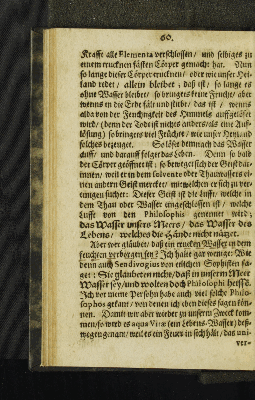 60.
Krafft alle Elementa verschlossen / und selbiges zu
einem trucknen fästen Cörper gemacht hat. Nun
so lange dieser Cörper trucknen / oder wie unser Hei-
land redet / allein bleibet; daß ist / so lange es
ohne Wasser bleibet / so bringets keine Früchte / aber
wenns in die Erde fält und stirbt / das ist / wenns
alda von der Feuchtigkeit des Himmels auffgelöset
wird / (denn der Tod ist nichts anders / als eine Auf-
lösung) so bringets viel Früchte / wie unser Heyland
solches bezeuget. So löset demnach das Wasser
auff / und darauff folget das Leben. Denn so bald
der Cörper geöffnet ist / so beweget sich der Geist dar-
innen / weil er in dem solvente oder Thauwassers ei-
nen andern Geist mercket / mit welchen er sich zu ver-
einigen suchet: Dieser Geist ist die Lufft / welche in
dem Thau oder Wasser eingeschlossen ist / welche
Lufft von den Philosophis genennet wird
das Wasser unsers Meers / das Wasser des
Lebens / welches die Hände nicht nätzet.
Aber wer gläubet / daß ein trucken Wasser in dem
feuchten verborgen sey? Ich halte gar wenige: Wie
denn auch Sendivogius von etlichen Sophisten sa-
get: Sie glaubeten nicht / daß in unserm Meer
Wasser sey / und wolten doch Philosophi heissen.
Ich vor meine Persohn habe auch viel solche Philo-
sophos gekant / von denen ich eben dieses sagen kön-
nen. Damit wir aber wieder zu unserm Zweck kom-
men / so wird es aqua Vitæ (ein Lebens-Wasser) deß-
wegen genant / weil es ein Feuer in sich hält / das uni-
ver-